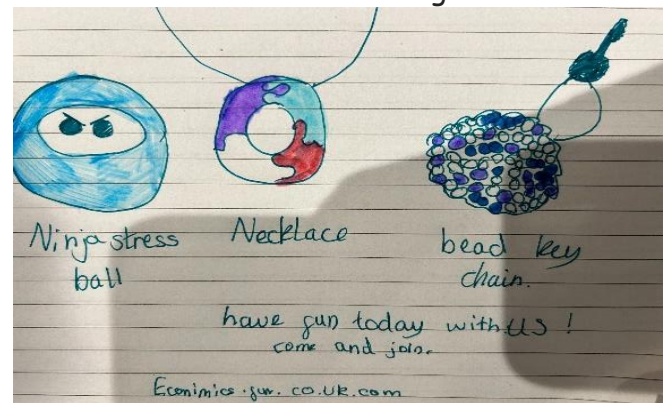 Ninja stress
ball
Necklace
bead key
chain.
have fun today with us !
come and join.
Econimics.fun.co.uk.com